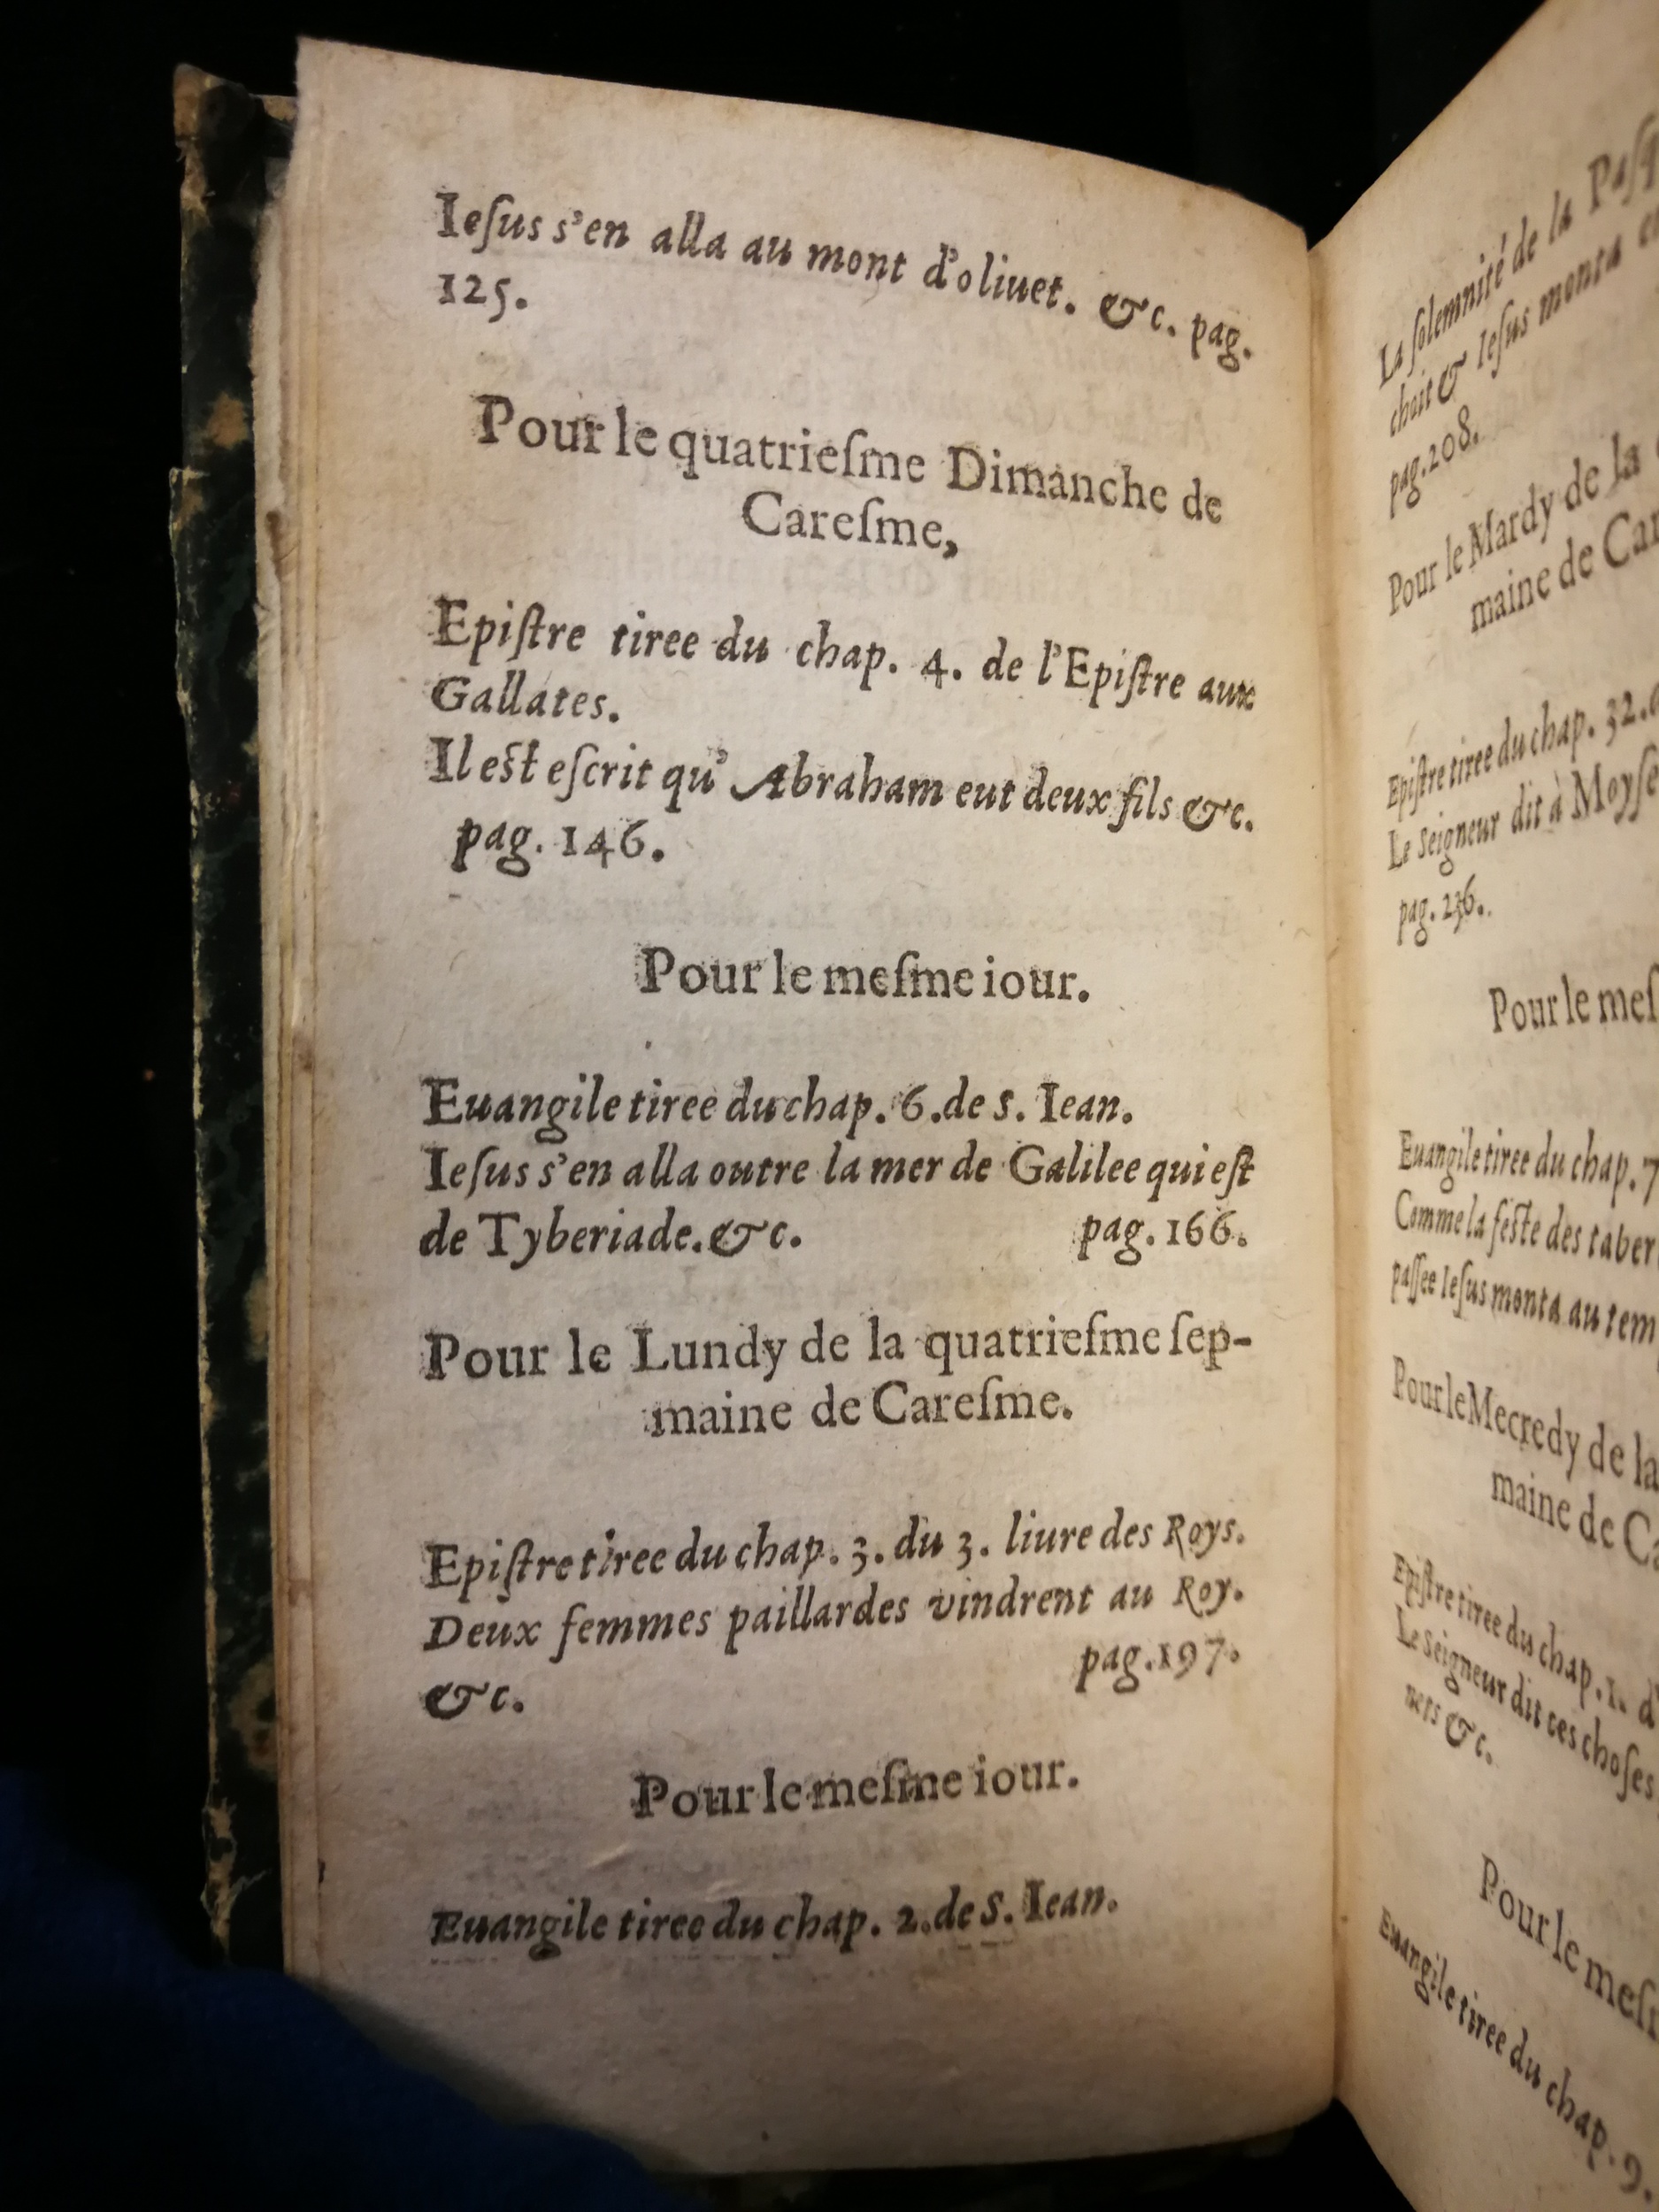 Ieſus s'en alla au mont d'oliuet. &c. pag.
125.
Pour le quatrieſme Dimanche de
Careſme,
Epiſtre tiree du chap. 4. de l'Epiſtre aux
Gallates.
Il eſt eſcrit qu' Abraham eut deux fils &c.
pag. 146.
Pour le meſme iour.
Euangile tiree du chap. 6. de s. Iean.
Ieſus s'en alla outre la mer de Galilee qui eſt
de Tyberiade. &c. pag. 166.
Pour le Lundy de la quatrieſme ſep-
maine de Careſme.
Epiſtre tiree du chap. 3. du 3. liure des Roys.
Deux femmes paillardes vindrent au Roy.
&c. pag. 197.
Pour le meſme iour.
Euangile tiree du chap. 2. de S. Iean.
La ſolemnité de la Paſq
choit & Ieſus monta
pag. 208.
Pour le Mardy de la
maine de Car
Epiſtre tiree du chap. 32.
Le Seigneur dit à Moyſe
pag. 236.
Pour le meſ
Euangile tiree du chap. 7
Comme la feſte des taber
paſſee Ieſus monta au tem
Pour le Mecredy de la
maine de Ca
Epiſtre tiree du chap. 1. d'
Le Seigneur dit ces choſes
nets &c.
Pour le meſm
Euangile tiree du chap. 9.